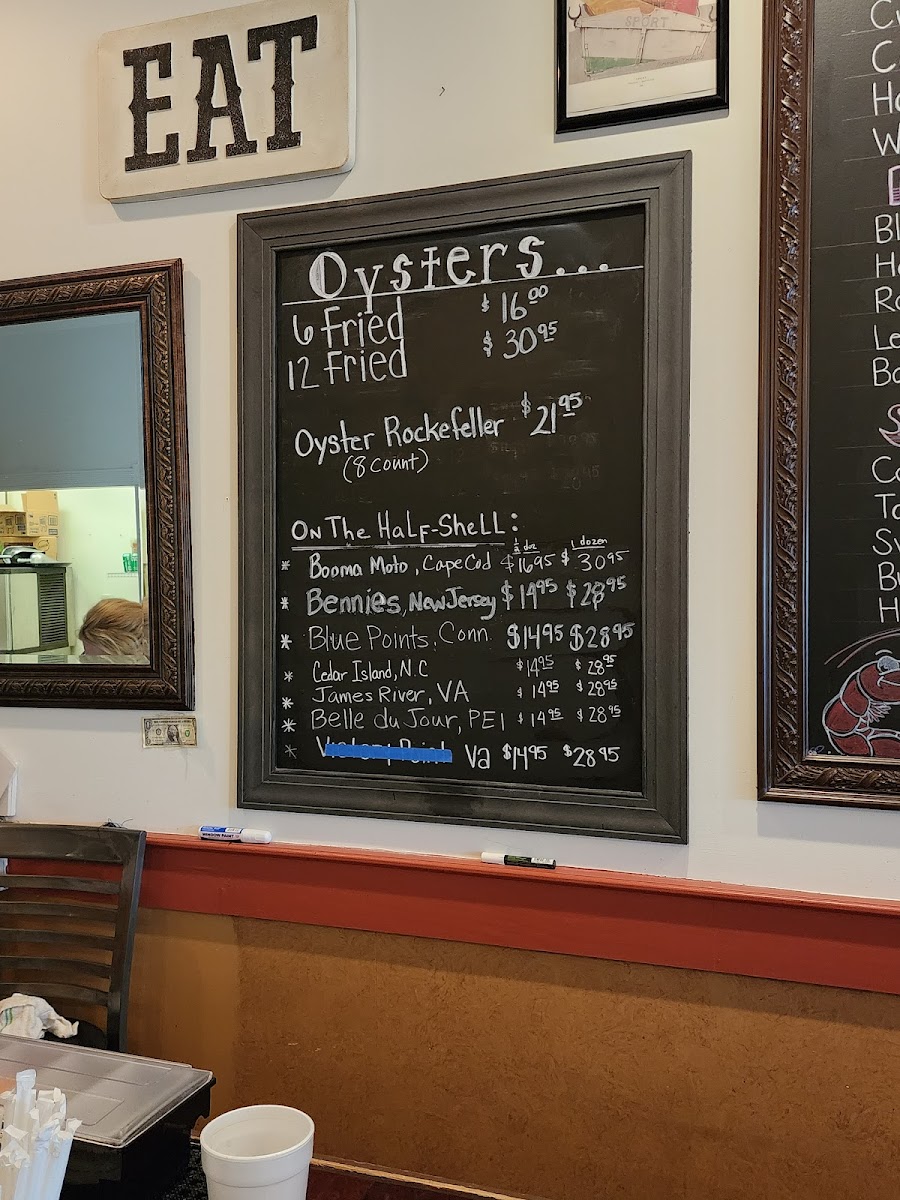 EAT
SPORT
Oysters...
6 Fried $16.00
12 Fried $30.95
Oyster Rockefeller $21.95
(8 count)
On The Half-Shell:
½ doz 1 dozen
* Booma Moto, Cape Cod $16.95 $30.95
* Bennies, New Jersey $14.95 $28.95
* Blue Points, Conn. $14.95 $28.95
* Cedar Island, N.C $14.95 $28.95
* James River, VA $14.95 $28.95
* Belle du Jour, PEI $14.95 $28.95
* Va $14.95 $28.95